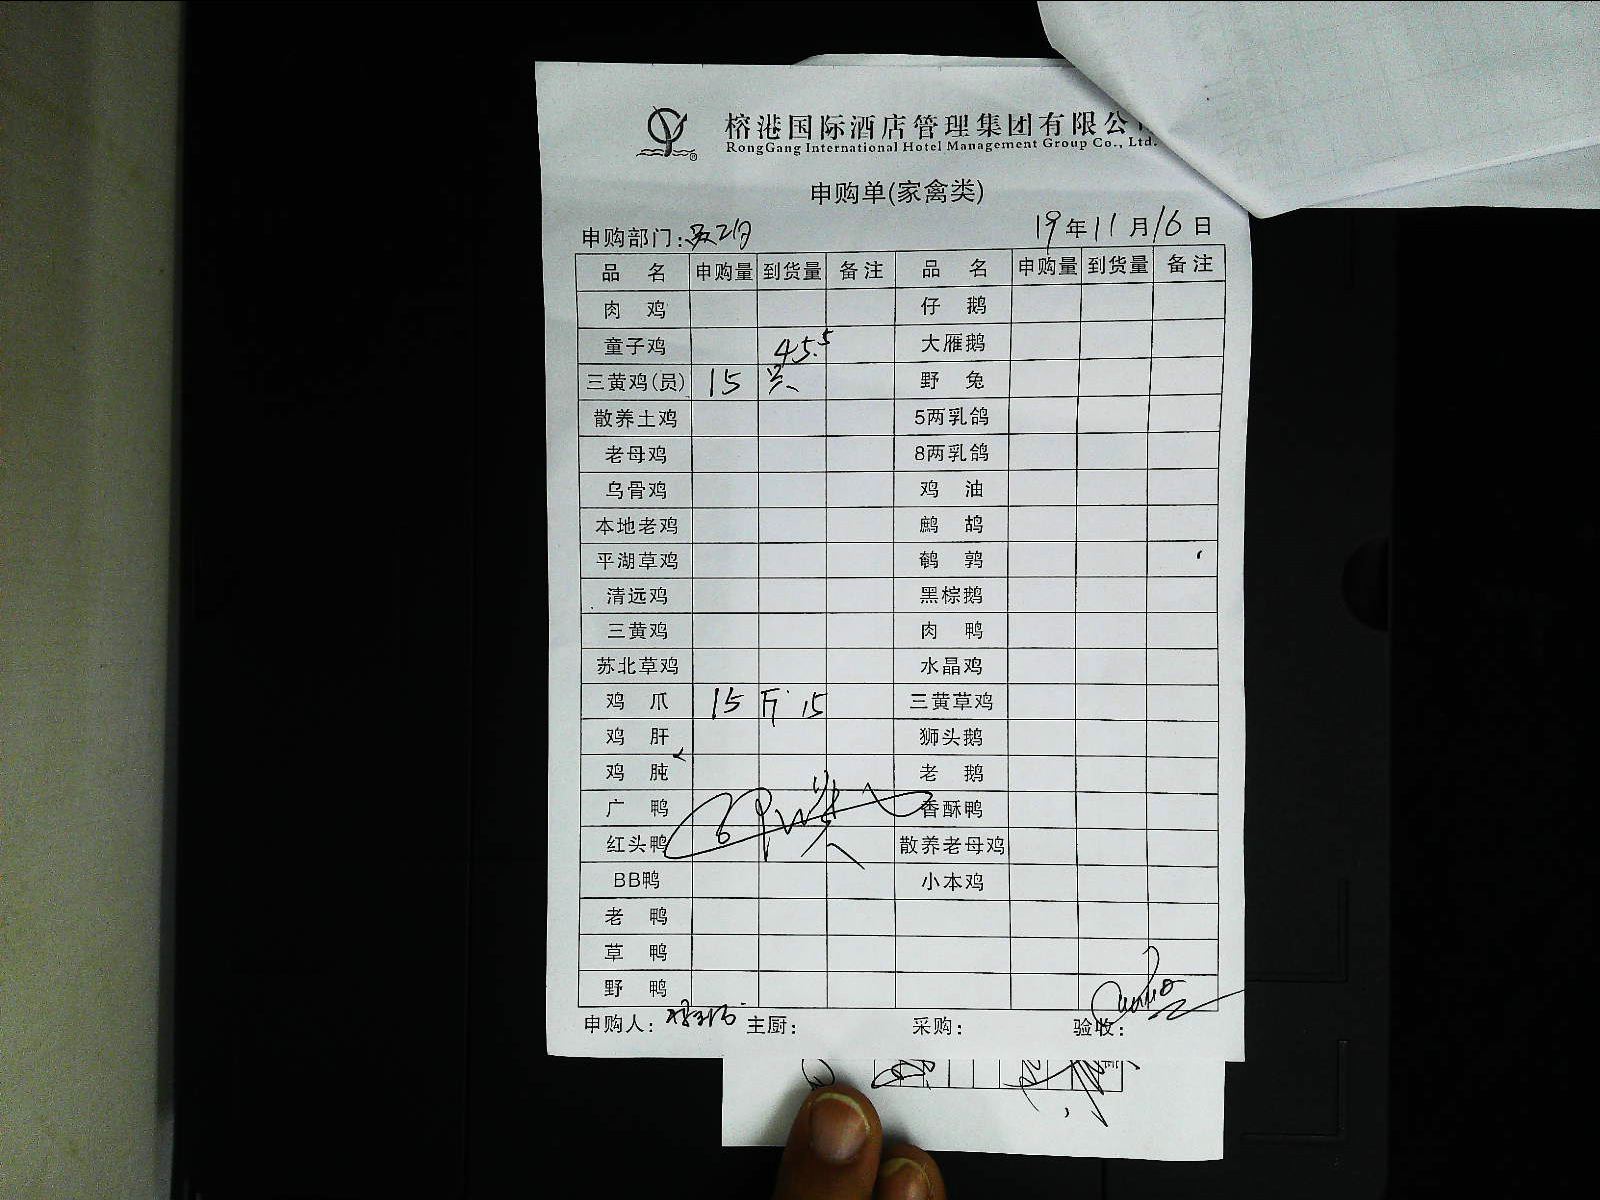 榕港国际酒店管理集团有限公
RongGang International Hotel Management Group Co., Ltd.
申购单(家禽类)
申购部门: 19年11月16日
品名 申购量 到货量 备注 品名 申购量 到货量 备注
肉鸡 仔鹅
童子鸡 45.5 大雁鹅
三黄鸡(员) 15 只 野兔
散养土鸡 5两乳鸽
老母鸡 8两乳鸽
乌骨鸡 鸡油
本地老鸡 鹧鸪
平湖草鸡 鹌鹑
清远鸡 黑棕鹅
三黄鸡 肉鸭
苏北草鸡 水晶鸡
鸡爪 15 斤 15 三黄草鸡
鸡肝 狮头鹅
鸡肫 老鹅
广鸭 香酥鸭
红头鸭 散养老母鸡
BB鸭 小本鸡
老鸭
草鸭
野鸭
申购人: 主厨: 采购: 验收: